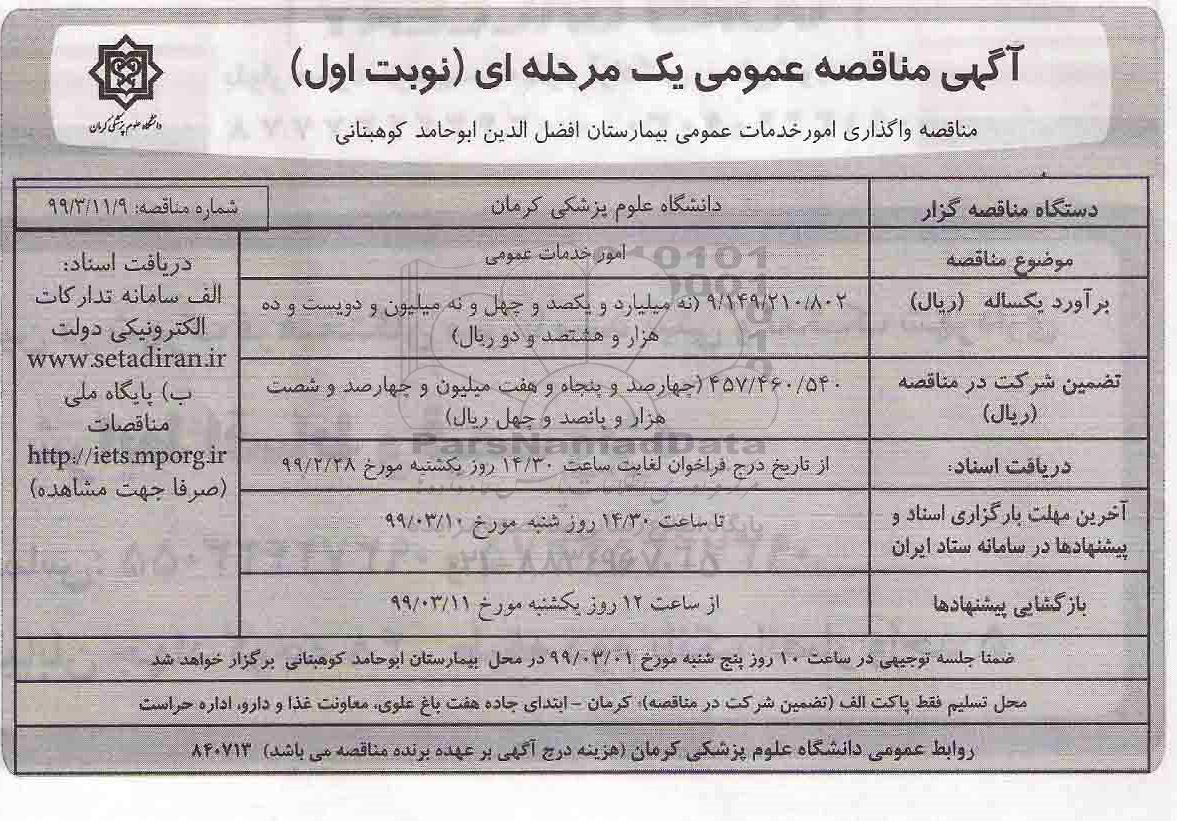 آگهی مناقصه عمومی یک مرحله ای (نوبت اول)
دانشگاه علوم پزشکی کرمان
مناقصه واگذاری امورخدمات عمومی بیمارستان افضل الدین ابوحامد کوهبنانی
دستگاه مناقصه گزار
دانشگاه علوم پزشکی کرمان
شماره مناقصه: ۹۹/۳/۱۱/۹
موضوع مناقصه
امور خدمات عمومی
برآورد یکساله (ریال)
۹/۱۴۹/۲۱۰/۸۰۲ (نه میلیارد و یکصد و چهل و نه میلیون و دویست و ده
هزار و هشتصد و دو ریال)
تضمین شرکت در مناقصه
(ریال)
۴۵۷/۴۶۰/۵۴۰ (چهارصد و پنجاه و هفت میلیون و چهارصد و شصت
هزار و پانصد و چهل ریال)
دریافت اسناد:
از تاریخ درج فراخوان لغایت ساعت ۱۴/۳۰ روز یکشنبه مورخ ۹۹/۲/۲۸
آخرین مهلت بارگزاری اسناد و
پیشنهادها در سامانه ستاد ایران
تا ساعت ۱۴/۳۰ روز شنبه مورخ ۹۹/۰۳/۱۰
بازگشایی پیشنهادها
از ساعت ۱۲ روز یکشنبه مورخ ۹۹/۰۳/۱۱
دریافت اسناد:
الف سامانه تدارکات
الکترونیکی دولت
www.setadiran.ir
ب) پایگاه ملی
مناقصات
http://iets.mporg.ir
(صرفا جهت مشاهده)
ضمنا جلسه توجیهی در ساعت ۱۰ روز پنج شنبه مورخ ۹۹/۰۳/۰۱ در محل بیمارستان ابوحامد کوهبنانی برگزار خواهد شد
محل تسلیم فقط پاکت الف (تضمین شرکت در مناقصه): کرمان - ابتدای جاده هفت باغ علوی، معاونت غذا و دارو، اداره حراست
روابط عمومی دانشگاه علوم پزشکی کرمان (هزینه درج آگهی بر عهده برنده مناقصه می باشد) ۸۴۰۷۱۳
ParsNamadData